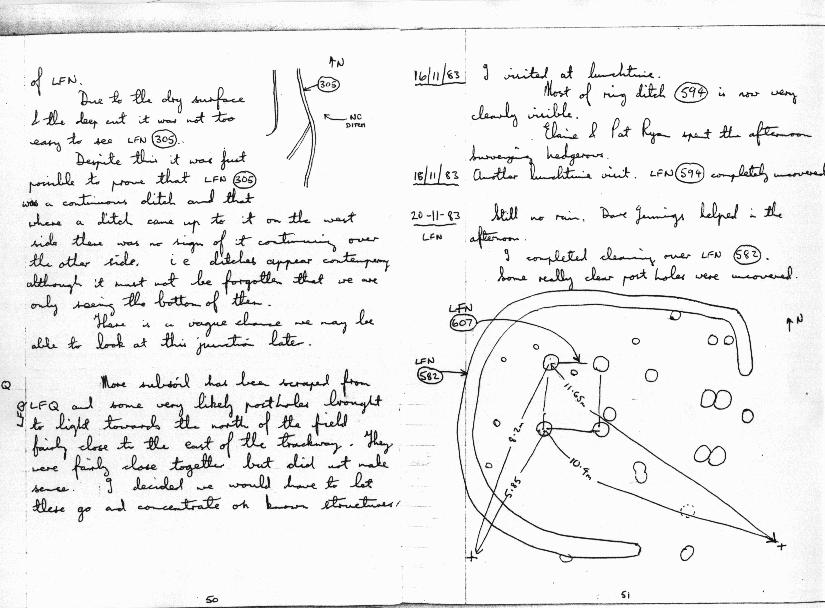 of LFN.
Due to the dry surface
& the deep cut it was not too
easy to see LFN 305.
Despite this it was just
possible to prove that LFN 305
was a continuous ditch and that
where a ditch came up to it on the west
side there was no sign of it continuing over
the other side. i.e ditches appear contempory
although it must not be forgotten that we are
only seeing the bottom of them.
There is a vague chance we may be
able to look at this junction later.
N
305
NC
DITCH
Q
LFQ
More subsoil has been scraped from
LFQ and some very likely postholes brought
to light towards the north of the field
fairly close to the east of the trackway. They
were fairly close together but did not make
sense. I decided we would have to let
these go and concentrate on known structures.
50
16/11/83 I visited at lunchtime.
Most of ring ditch 594 is now very
clearly visible.
Elaine & Pat Ryan spent the afternoon
surveying hedgerows.
18/11/83 Another lunchtime visit. LFN 594 completely uncovered
20-11-83 Still no rain. Dave Jennings helped in the
LFN afternoon.
I completed cleaning over LFN 582.
Some really clear post holes were uncovered.
LFN
607
N
LFN
582
11.65m
8.2m
10.4m
5.85
51